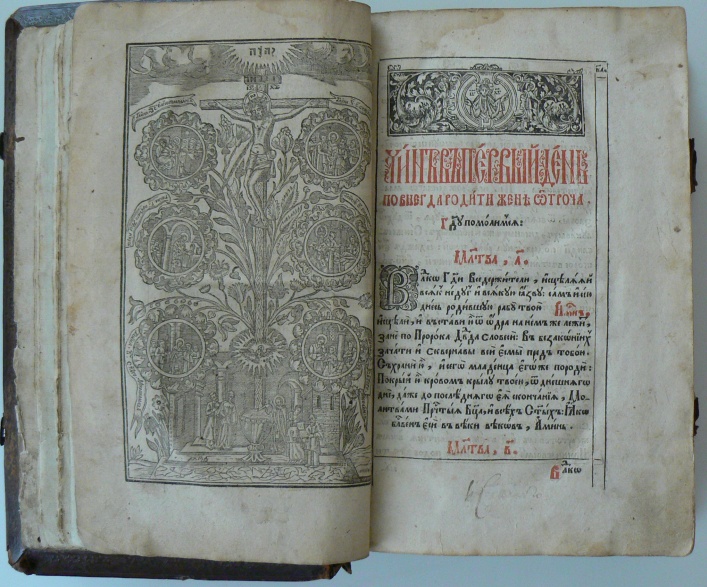 יהוה
ЧИ́НЪ В ПЕ́РВЫЙ ДЕ́НЬ
ПО ВНЕГДА РОДИ́ТИ ЖЕНѢ̀ Ѿ́ТРОЧА.
Гдⷭ҇ꙋ помо́лимсѧ:
Мл҃тва, а҃.
Влⷣко Гдⷭ҇и Вседержи́телю, и҆сцѣлѧ́ѧй
всѧ́къ недꙋ́гъ и҆ всѧ́кꙋю ꙗ҆́звꙋ: са́мъ и҆ сі-
ю дне́сь роди́вшꙋю рабꙋ̀ твою̀ И҆́мкъ,
и҆сцѣлѝ, и҆ въста́ви ю҆̀ ѿ ѻ҆дра̀ на не́мъ же лежи́тъ,
занѐ по Проро́ка Дв҃да словесѝ: Въ беззако́нїихъ
зача́ти и҆ скве́рнавы всѝ є҆смы̀ пред̾ тобо́ю.
Съхранѝ ю҆̀, и҆ сегѡ̀ младенца є҆го́же породѝ:
Покры́й ю҆̀ кро́вомъ крылꙋ̀ твоє́ю, ѿ дне́шнѧгѡ
днѐ, да́же до послѣ́днѧгѡ є҆ѧ̀ сконча́нїѧ, Мо-
ли́твами Прⷱ҇тыѧ Бц҃а, и҆ всѣ́хъ Ст҃ы́хъ: Ꙗ҆́кѡ
блгⷭ҇ве́нъ є҆сѝ въ вѣ́ки вѣкѡ́въ, А҆ми́нь.
Мл҃тва, в҃.
Влⷣкѡ